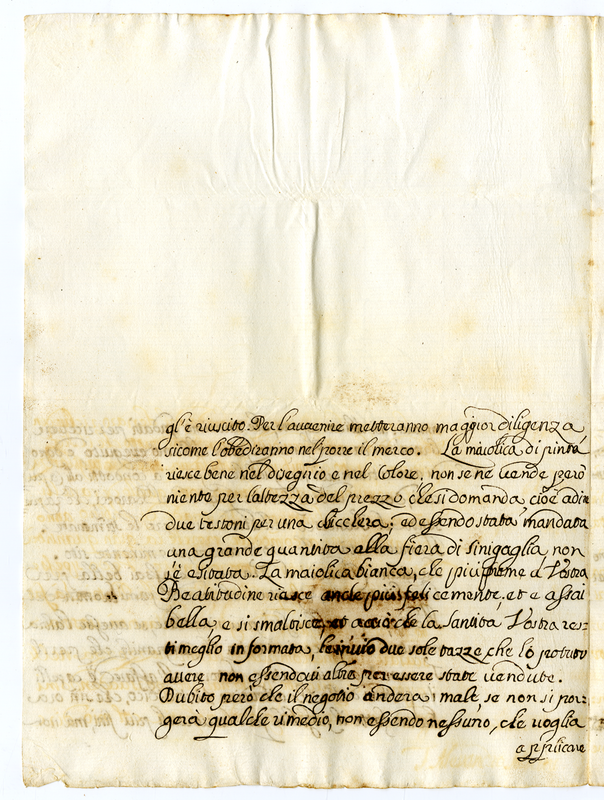 gl'è riuscito. Per l'auuenire metteranno maggior diligenza
sicome l'obediranno nel porre il merco. La maiolica di
riesce bene nel disegno e nel colore, non se ne uende però
niente per l'altezza del prezzo che si domanda, cioè
due testoni per una chicchera; ed essendo stata mandata
una grande quantità alla fiera di Sinigaglia non
s'è esitata. La maiolica bianca, che più preme à Vostra
Beatitudine riesce anche più felicemente, et è assai
bella, e si smaltisce, et acciò che la Santità Vostra res-
ti meglio informata, le inuio due sole tazze, che hò potuto
auere non essendoui altro per essere state uendute.
Dubito però che il negotio anderà male, se non si por-
gerà qualche rimedio, non essendo nessuno, che voglia
applicare